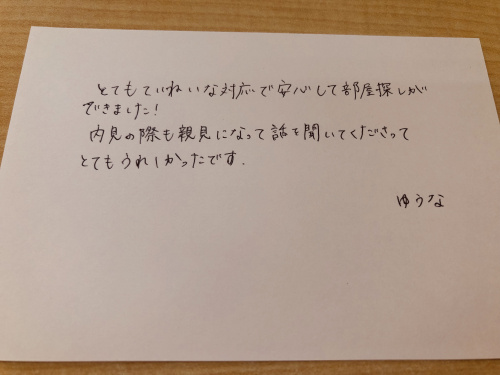 とてもていねいな対応で安心して部屋探しが
できました!
内見の際も親見になって話を聞いてくださって
とてもうれしかったです.
ゆうな